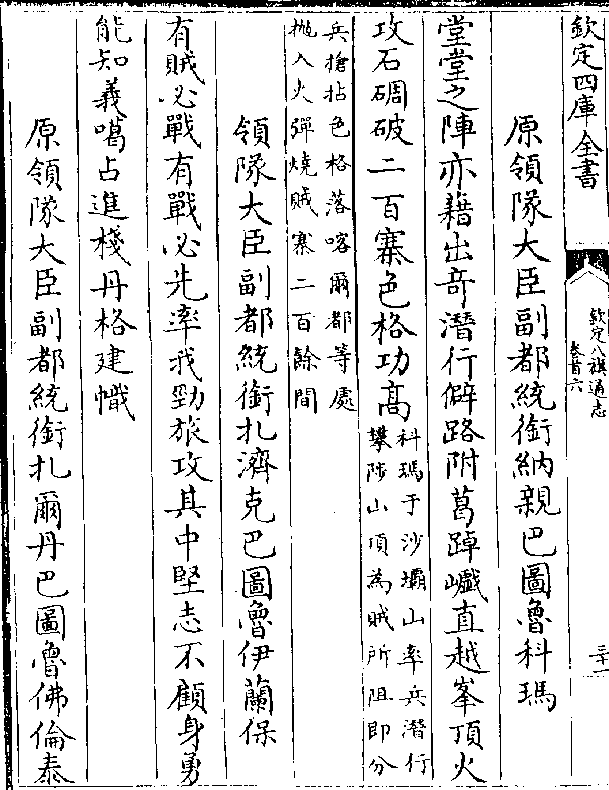 欽定四庫全書
欽定八旗通志
卷首六
三十一
原領隊大臣副都統銜納親巴圖魯科瑪
堂堂之陣亦藉出奇潛行僻路附葛踔巘直越峯頂火
攻石碉破二百寨色格功高
科瑪于沙壩山率兵潛行
攀陟山頂為賊所阻即分
兵搶拈色格落喀爾都等處
抛入火彈燒賊寨二百餘間
領隊大臣副都統銜扎濟克巴圖魯伊蘭保
有賊必戰有戰必先率我勁旅攻其中堅志不顧身勇
能知義噶占進棧丹格建幟
原領隊大臣副都統銜扎爾丹巴圖魯佛倫泰